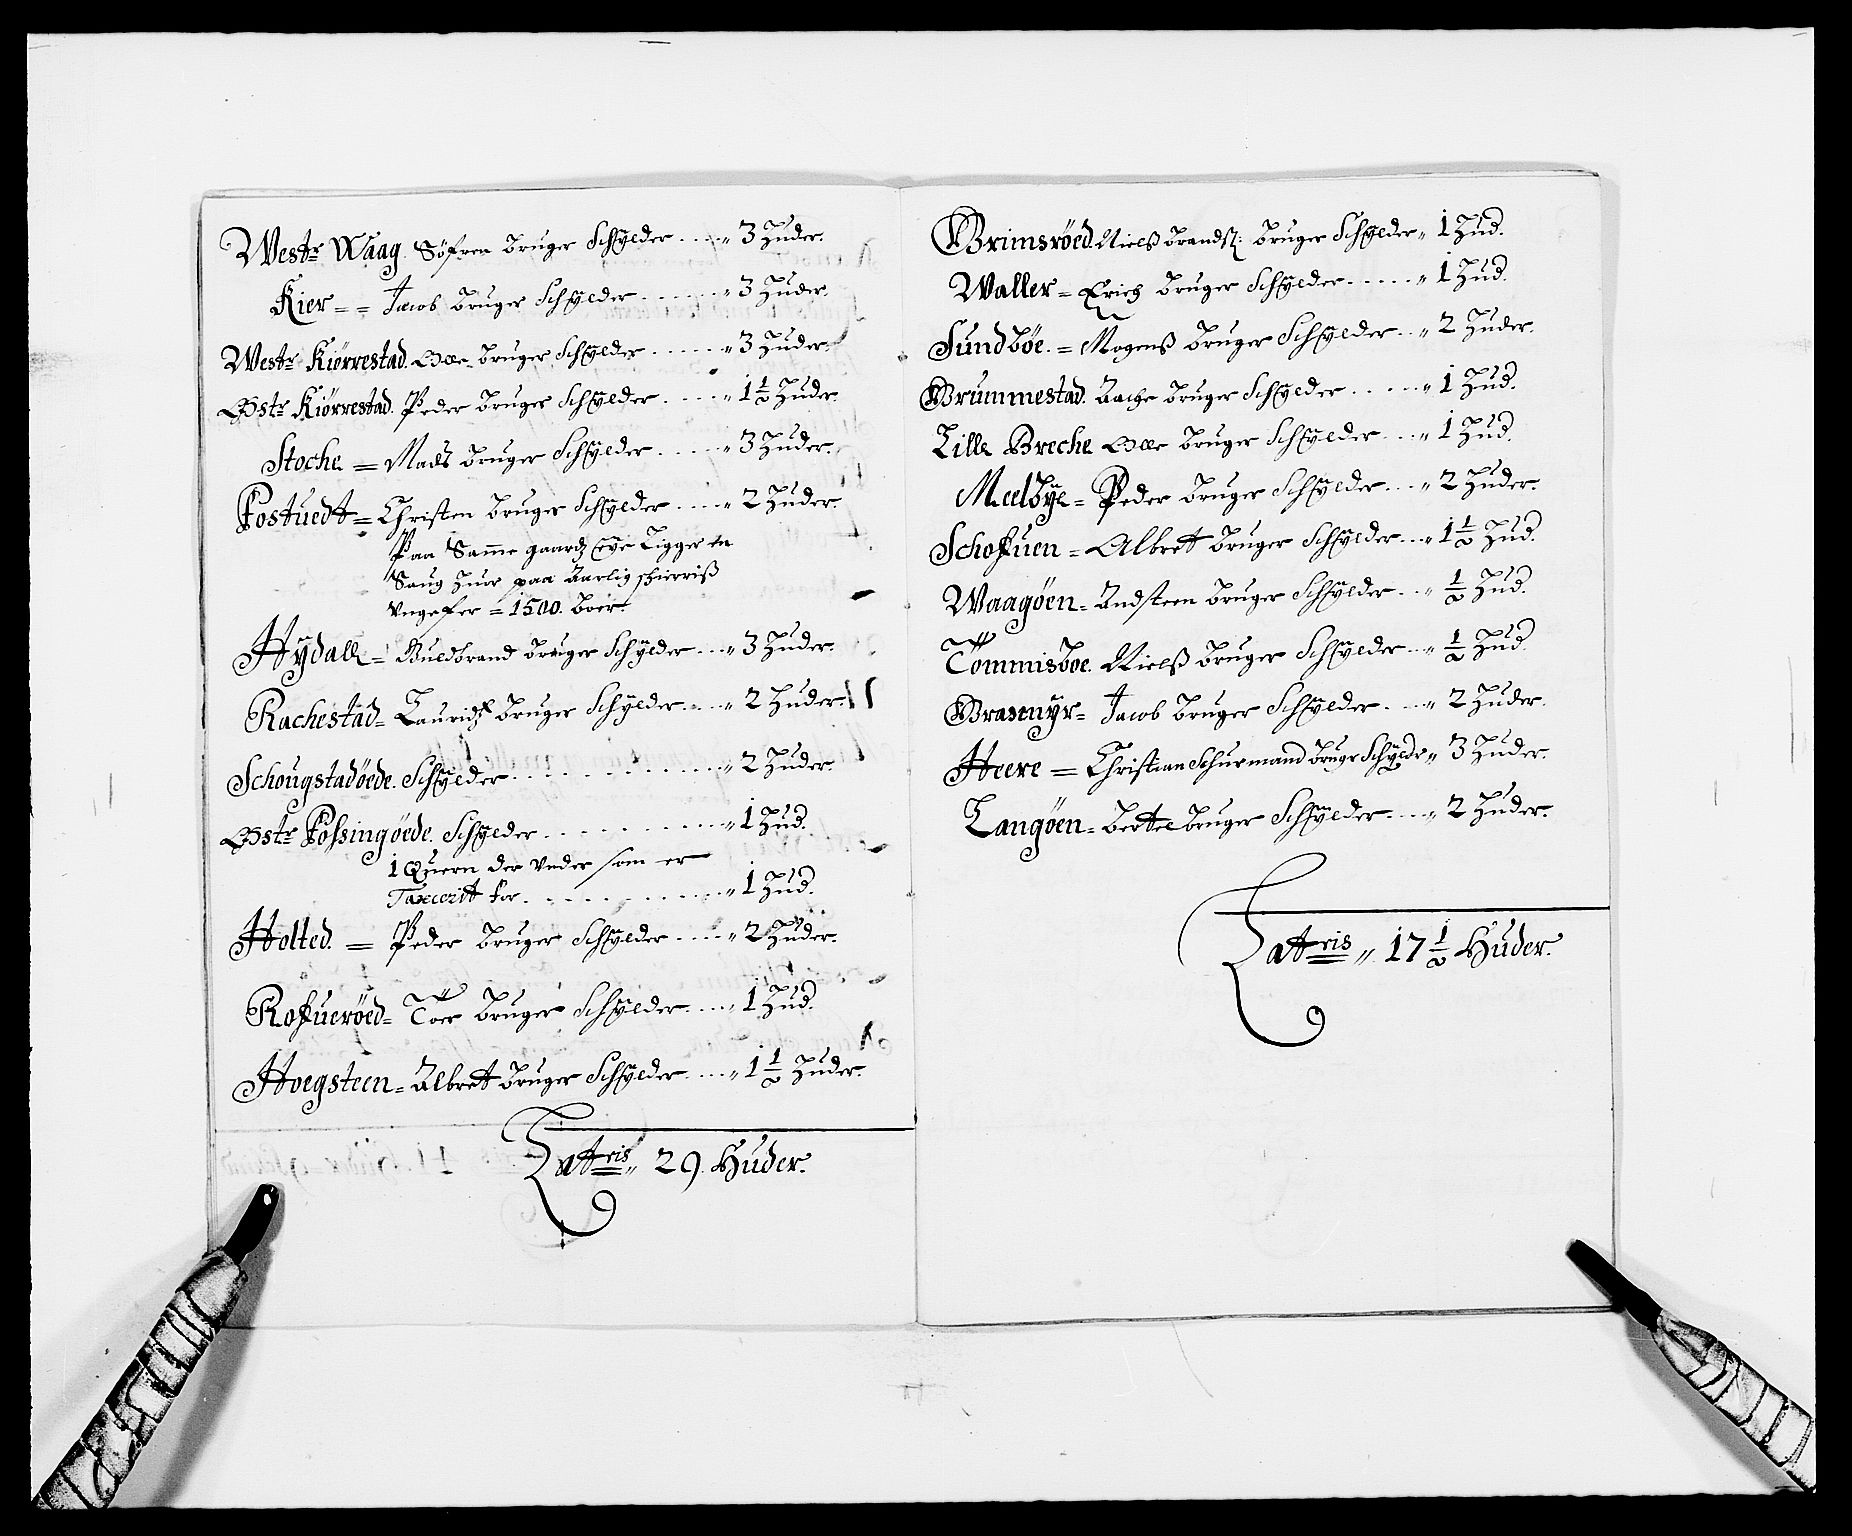 Westr Waag. Söfren bruger Schÿlder .... „ 3 Huder.
Kier = = Jacob bruger Schÿlder ...... „ 3 Huder.
Westr Kiörrestad. Olle bruger Schÿlder ..... „ 3 Huder.
Østr Kiörrestad. Peder bruger Schÿlder .... „ 1 1/2 Huder.
Stoche = Mads bruger Schÿlder ..... „ 3 Huder.
Fostuedt = Christen bruger Schÿlder .... „ 2 Huder.
Paa Samme gaardz Eye Ligger en
Saug huor paa Aarlig schierris
Vngefer = 1500. boer.
Hÿdall = Guldbrand bruger Schÿlder ... „ 3 Huder.
Rachestad = Lauridz bruger Schÿlder ... „ 2 Huder.
Schougstadöede. Schÿlder ............ „ 2 Huder.
Østr Fossingöede. Schÿlder .......... „ 1 Hud.
1 Quern der vnder som er
Taxeerit for .......... „ 1 Hud.
Holted. = Peder bruger Schÿlder .... „ 2 Huder.
Rofueröed = Toer bruger Schÿlder .... „ 1 Hud.
Hoegsteen = Albret bruger Schÿlder .... „ 1 1/2 Huder.
Latris „ 29. Huder.
Grimsröed. Niels brandß: bruger Schÿlder „ 1 Hud.
Waller = Erich bruger Schÿlder ..... „ 1 Hud.
Sundböe. = Mogens bruger Schÿlder ... „ 2 Huder.
Grummestad. Aache bruger Schÿlder ..... „ 1 Hud.
Lille Breche Olle bruger Schÿlder ... „ 1 Hud.
Meelbÿe = Peder bruger Schÿlder ... „ 2 Huder.
Schofuen = Albret bruger Schÿlder ... „ 1 1/2 Hud.
Waagöen = Andsteen bruger Schÿlder ... „ 1/2 Hud.
Tommisboe. Niels bruger Schÿlder ... „ 1/2 Hud.
Grasmyr = Jacob bruger Schÿlder .... „ 2 Huder.
Heere = Christian Schurmand brugr Schÿldr „ 3 Huder.
Langöen = Bertel bruger Schÿlder .... „ 2 Huder.
Latris „ 17 1/2 Huder.